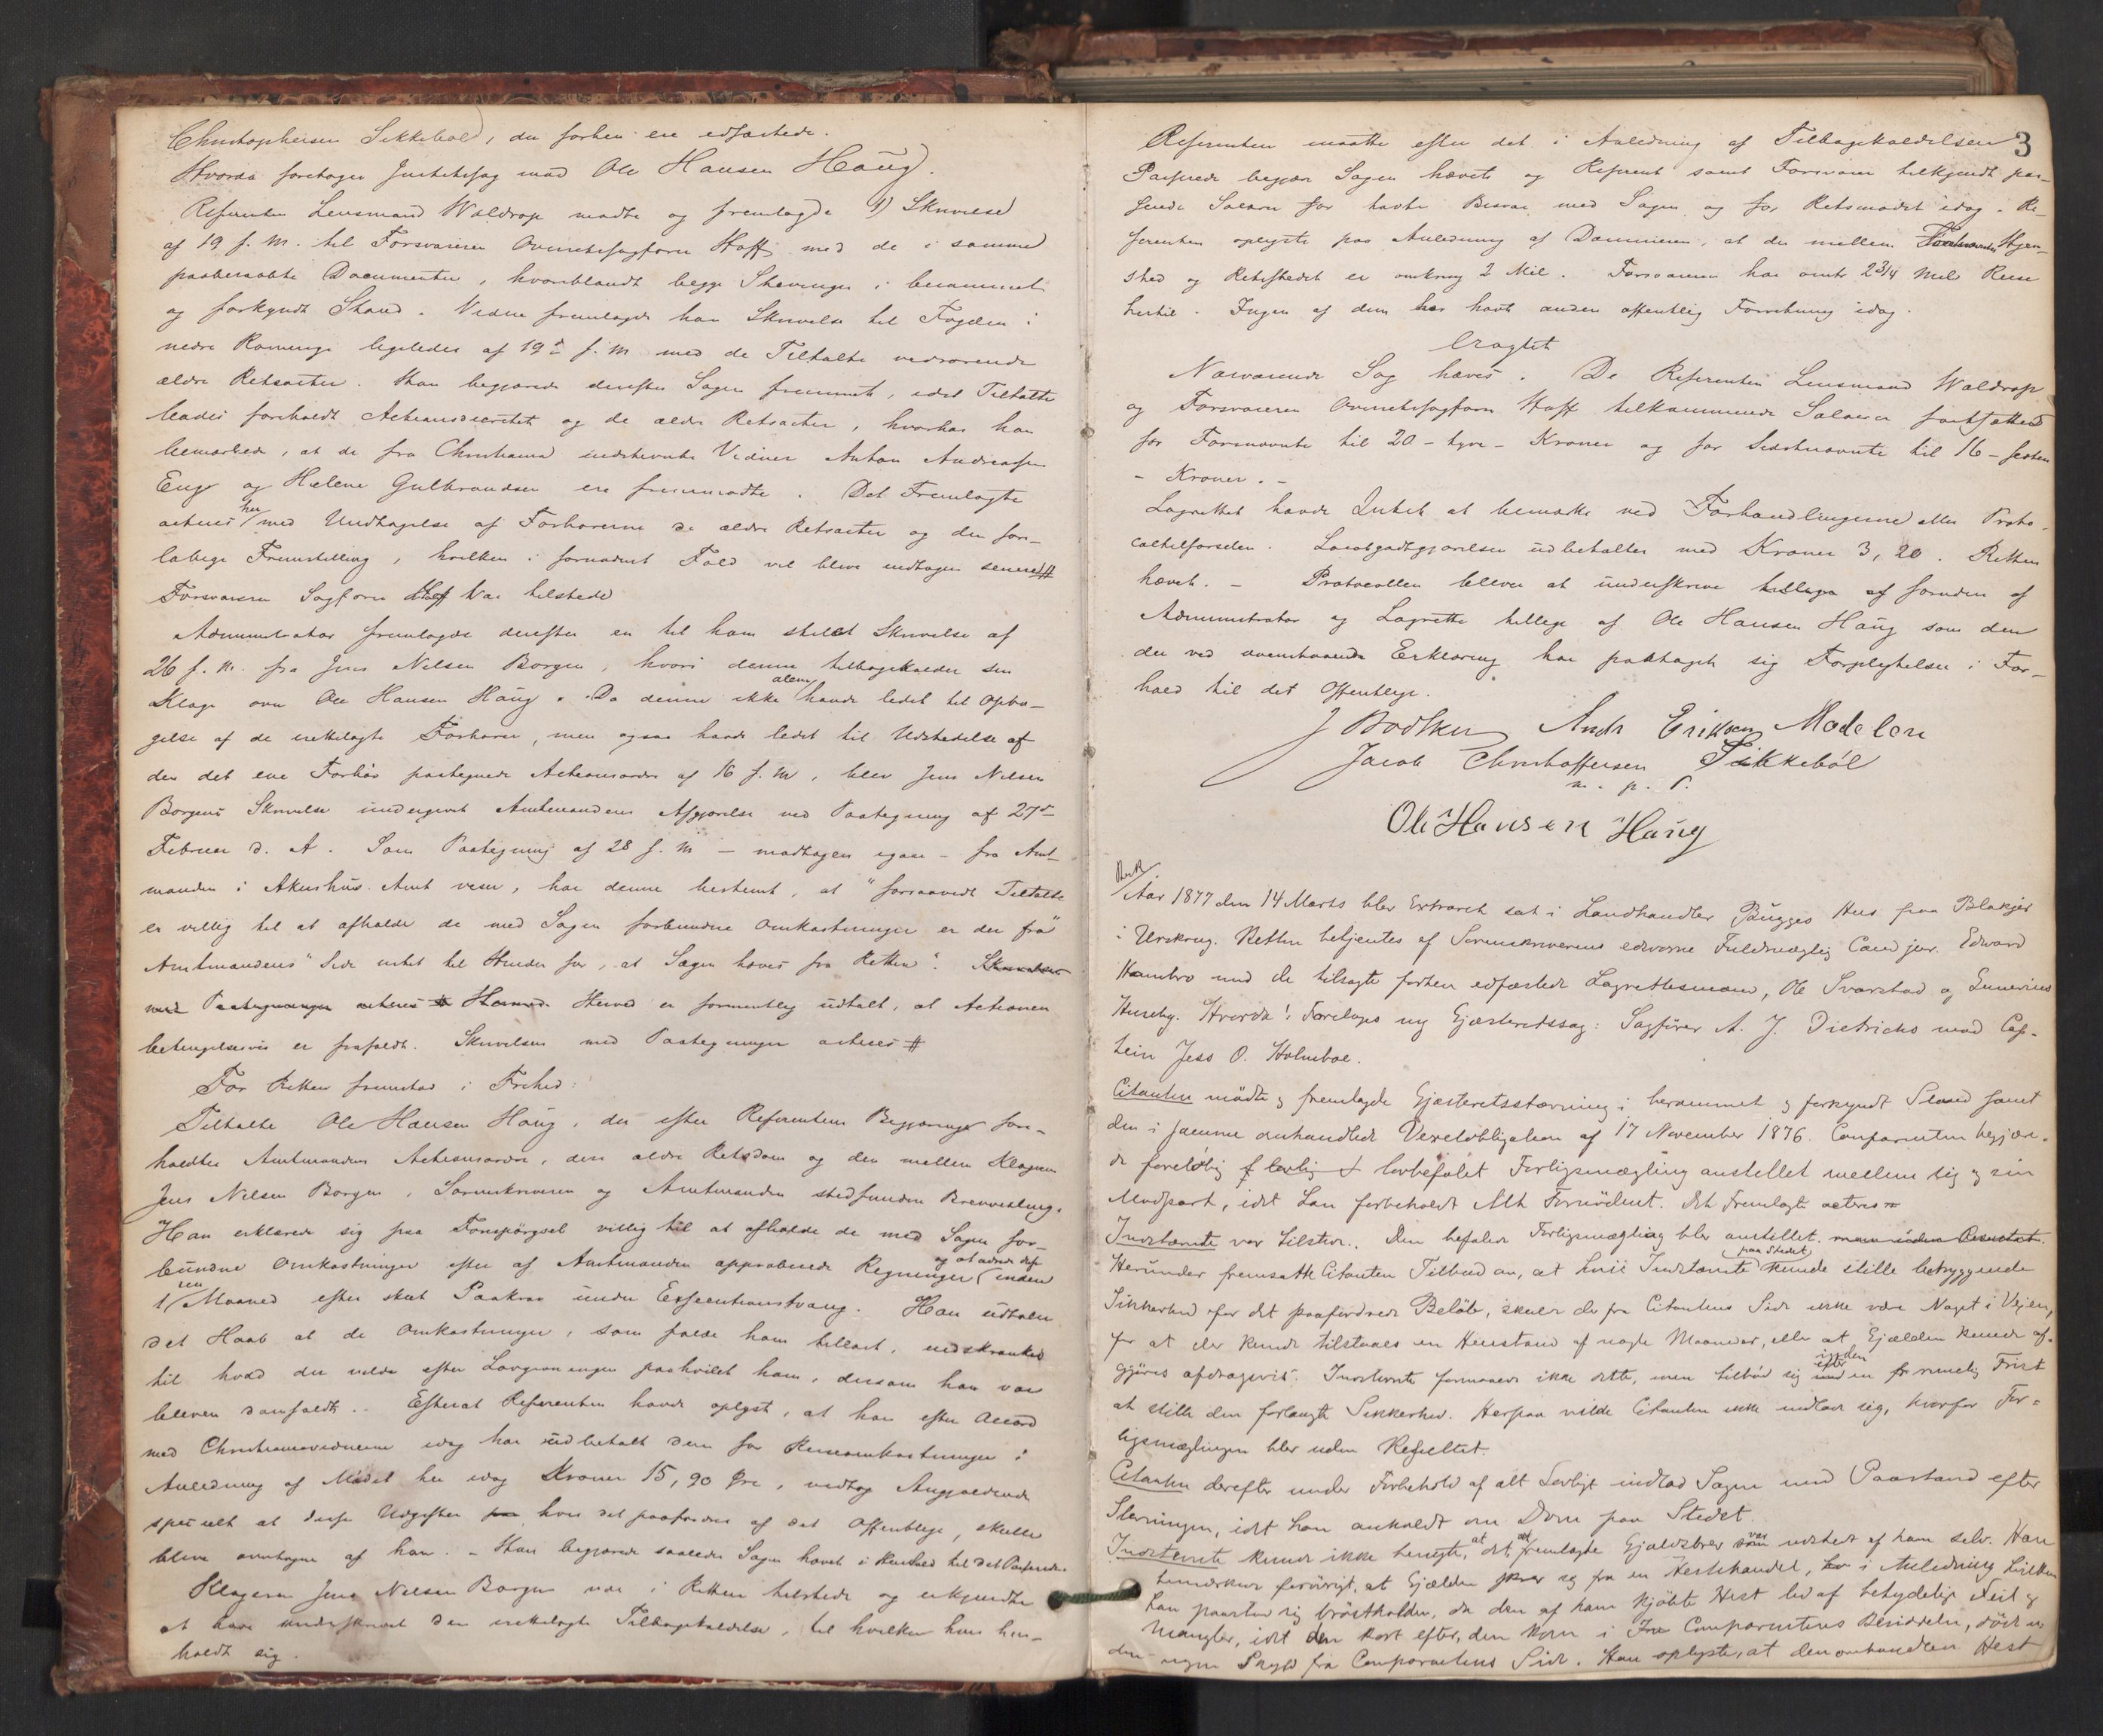 Christophersen Sikkebøl, der forhen ere edfæstede.
Hvorda foretoges Justitssag mod Ole Hansen Haug.
Referenten Lensmand Waldrop mødte og fremlagde 1) Skrivelse
af 19 f. M. til Forsvareren Overretssagfører Hoff med de i samme
paaberaabte Documenter, hvoriblandt begge Stevninger i berammet
og forkyndt Stand. Videre fremlagde han Skrivelse til Fogden i
nedre Romerige ligeledes af 19de f. M. med de Tiltalte vedrørende
ældre Retsacter. Han begjærede derefter Sagen fremmet, idet Tiltalte
blades foreholdt Actionsdecretet og de ældre Retsacter, hvorhos han
bemærkede, at de fra Christiania indstevnte Vidner Anton Andreassen
Eng og Helene Gulbrandsen ere fremmødte. Det Fremlagte
acteres her med Undtagelse af Forhørerne de ældre Retsacter og den fore-
løbige Fremstilling, hvilken i fornødent Fald vil blive indtagen senere #
Forsvareren Sagfører Hoff var tilstede
Administrator fremlagde derefter en til ham stilet Skrivelse af
26 f. M. fra Jens Nilsen Borgen, hvori denne tilbagekalder sin
Klage over Ole Hansen Haug. Da denne ikke alene havde ledet til Opta-
gelse af de irettelagte Forhører, men ogsaa havde ledet til Udstedelse af
den det ene Forhør paategnede Actionsordre af 16 f. M, blev Jens Nilsen
Borgens Skrivelse undergivet Amtmandens Afgjørelse ved Paategning af 27de
Februar d. A. Som Paategning af 28 f. M – modtagen igaar – fra Amt-
manden i Akershus Amt viser, har denne bestemt, at "forsaavidt Tiltalte
er villig til at afholde de med Sagen forbundne Omkostninger er der fra"
Amtmandens "Side intet til Hinder for, at Sagen hæves fra Retten". Skrivelsen
med Paategninger acteres # Hermed Herved er formentlig udtalt, at Actionen
betingelsesvis er frafaldt. Skrivelsen med Paategninger acteres #
For Retten fremstod i Frihed:
Tiltalte Ole Hansen Haug, der efter Referentens Begjæring fore-
holdtes Amtmandens Actionsordre, den ældre Retsdom og den mellem Klageren
Jens Nilsen Borgen, Sorenskriveren og Amtmanden stedfundne Brevvexling.
Han erklærede sig paa Forespørgsel villig til at afholde de med Sagen for-
bundne Omkostninger efter af Amtmanden approberede Regninger og at udrede disse inden
1 en Maaned efter skeet Paakrav under Executionstvang. Han udtalte
det Haab at de Omkostninger, som falde ham tillast, indskrænkes
til hvad der vilde efter Lovgivningen paahvilet ham, dersom han var
bleven domfældt. Efterat Referenten havde oplyst, at han efter Accord
med Christianiavidnerne idag har udbetalt dem for Reiseomkostninger i
Anledning af Mødet her idag Kroner 15,90 Øre, vedtog Angjældende
specielt at disse Udgifter hvis det paafordres af det Offentlige, skulle
blive overtagne af ham. – Han begjærede saaledes Sagen hævet i Henhold til det Passerede.
Klageren Jens Nilsen Borgen var i Retten tilstede og erkjendte
at have underskrevet den irettelagte Tilbagekaldelse, til hvilken han hen-
holdt sig.
3
Referenten maatte efter det i Anledning af Tilbagekaldelsen
Passerede begjære Sagen hævet og Referent samt Forsvarer tilkjendt pas-
sende Salarer for havte Besvær med Sagen og for Retsmødet idag. Re-
ferenten oplyste paa Anledning af Dommeren, at der mellem Hjem-
sted og Retsstedet er omkring 2 Mil. Forsvareren har omtr 2 3/4 Mils Reise
hertil. Ingen af dem har havt anden offentlig Forretning idag.
Eragtet
Nærværende Sag hæves. De Referenten Lensmand Waldrop
og Forsvareren Overretssagfører Hoff tilkommende Salarer fastsættes
for Førstnævnte til 20 – tyve – Kroner og for Sidstnævnte til 16 – sexten
– Kroner. –
Lagrettet havde Intet at bemærke ved Forhandlingerne eller Proto-
coltilførselen. Localgodtgjørelsen udbetaltes med Kroner 3,20. Retten
hævet. – Protocollen bliver at underskrive foruden af
Administrator og Lagrette tillige af Ole Hansen Haug som den
der ved ovenstaaende Erklæring har paataget sig Forpligtelser i For-
hold til det Offentlige.
J Bødtker Andr Eriksen Modelen
Jacob Christoffersen Sikkebøl
m. p. P.
Ole Hansen Haug
Aar 1877 den 14 Marts blev Extraret sat i Landhandler Bugges Hus paa Blakjer
i Urskoug. Retten betjentes af Sorenskriverens edsvorne Fuldmægtig Cand jur. Edvard
Hambro med de tilsagte forhen edfæstede Lagrettesmænd, Ole Svarstad og Gunerius
Huseby. Hvorda: Foretoges ny Gjæsteretssag: Sagfører A. J. Dietrichs mod Cap-
tein Jess O. Holmboe.
Citanten mødte og fremlagde Gjæsteretsstævning i berammet og forkyndt Stand samt
den i samme omhandlede Vexelobligation af 17 November 1876. Comparenten begjære-
de foreløbig lovbefalet Forligsmægling anstillet mellem sig og sin
Modpart, idet han forbeholdt Alt Fornødent. Det Fremlagte acteres
Indstævnte var tilstede. Den befalede Forligsmægling blev anstillet. men uden Resultat.
Herunder fremsatte Citanten Tilbud om, at hvis Indstævnte paa Stedet kunde stille betryggende
Sikkerhed for det paafordrede Beløb, skulde der fra Citantens Side ikke være Noget i Vejen,
for at der kunde tilstaaes en Henstand af nogle Maaneder, eller at Gjælden kunde af-
gjøres afdragsvis. Indstevnte formaaede ikke dette, men tilbød sig inden en rimelig Frist
at stille den forlangte Sikkerhed. Herpaa vilde Citanten ikke indlade sig, hvorfor For-
ligsmæglingen blev uden Resultat.
Citanten derefter under Forbehold af alt Lovligt indlod Sagen med Paastand efter
Stevningen, idet han anholdt om Dom paa Stedet.
Indstevnte kunde ikke benegte, at det fremlagte Gjældsbrev var udstedt af ham selv. Han
bemærkede forøvrigt, at Gjælden skrev sig fra en Hestehandel, i Anledning hvilken
han paastod sig brøstholden, da den af ham kjøbte Hest led af betydelige Feil og
Mangler, idet den kort efter, den kom i Comparentens Besiddelse, døde u-
den egen Skyld fra Comparentens Side. Han oplyste, at den omhandlede Hest